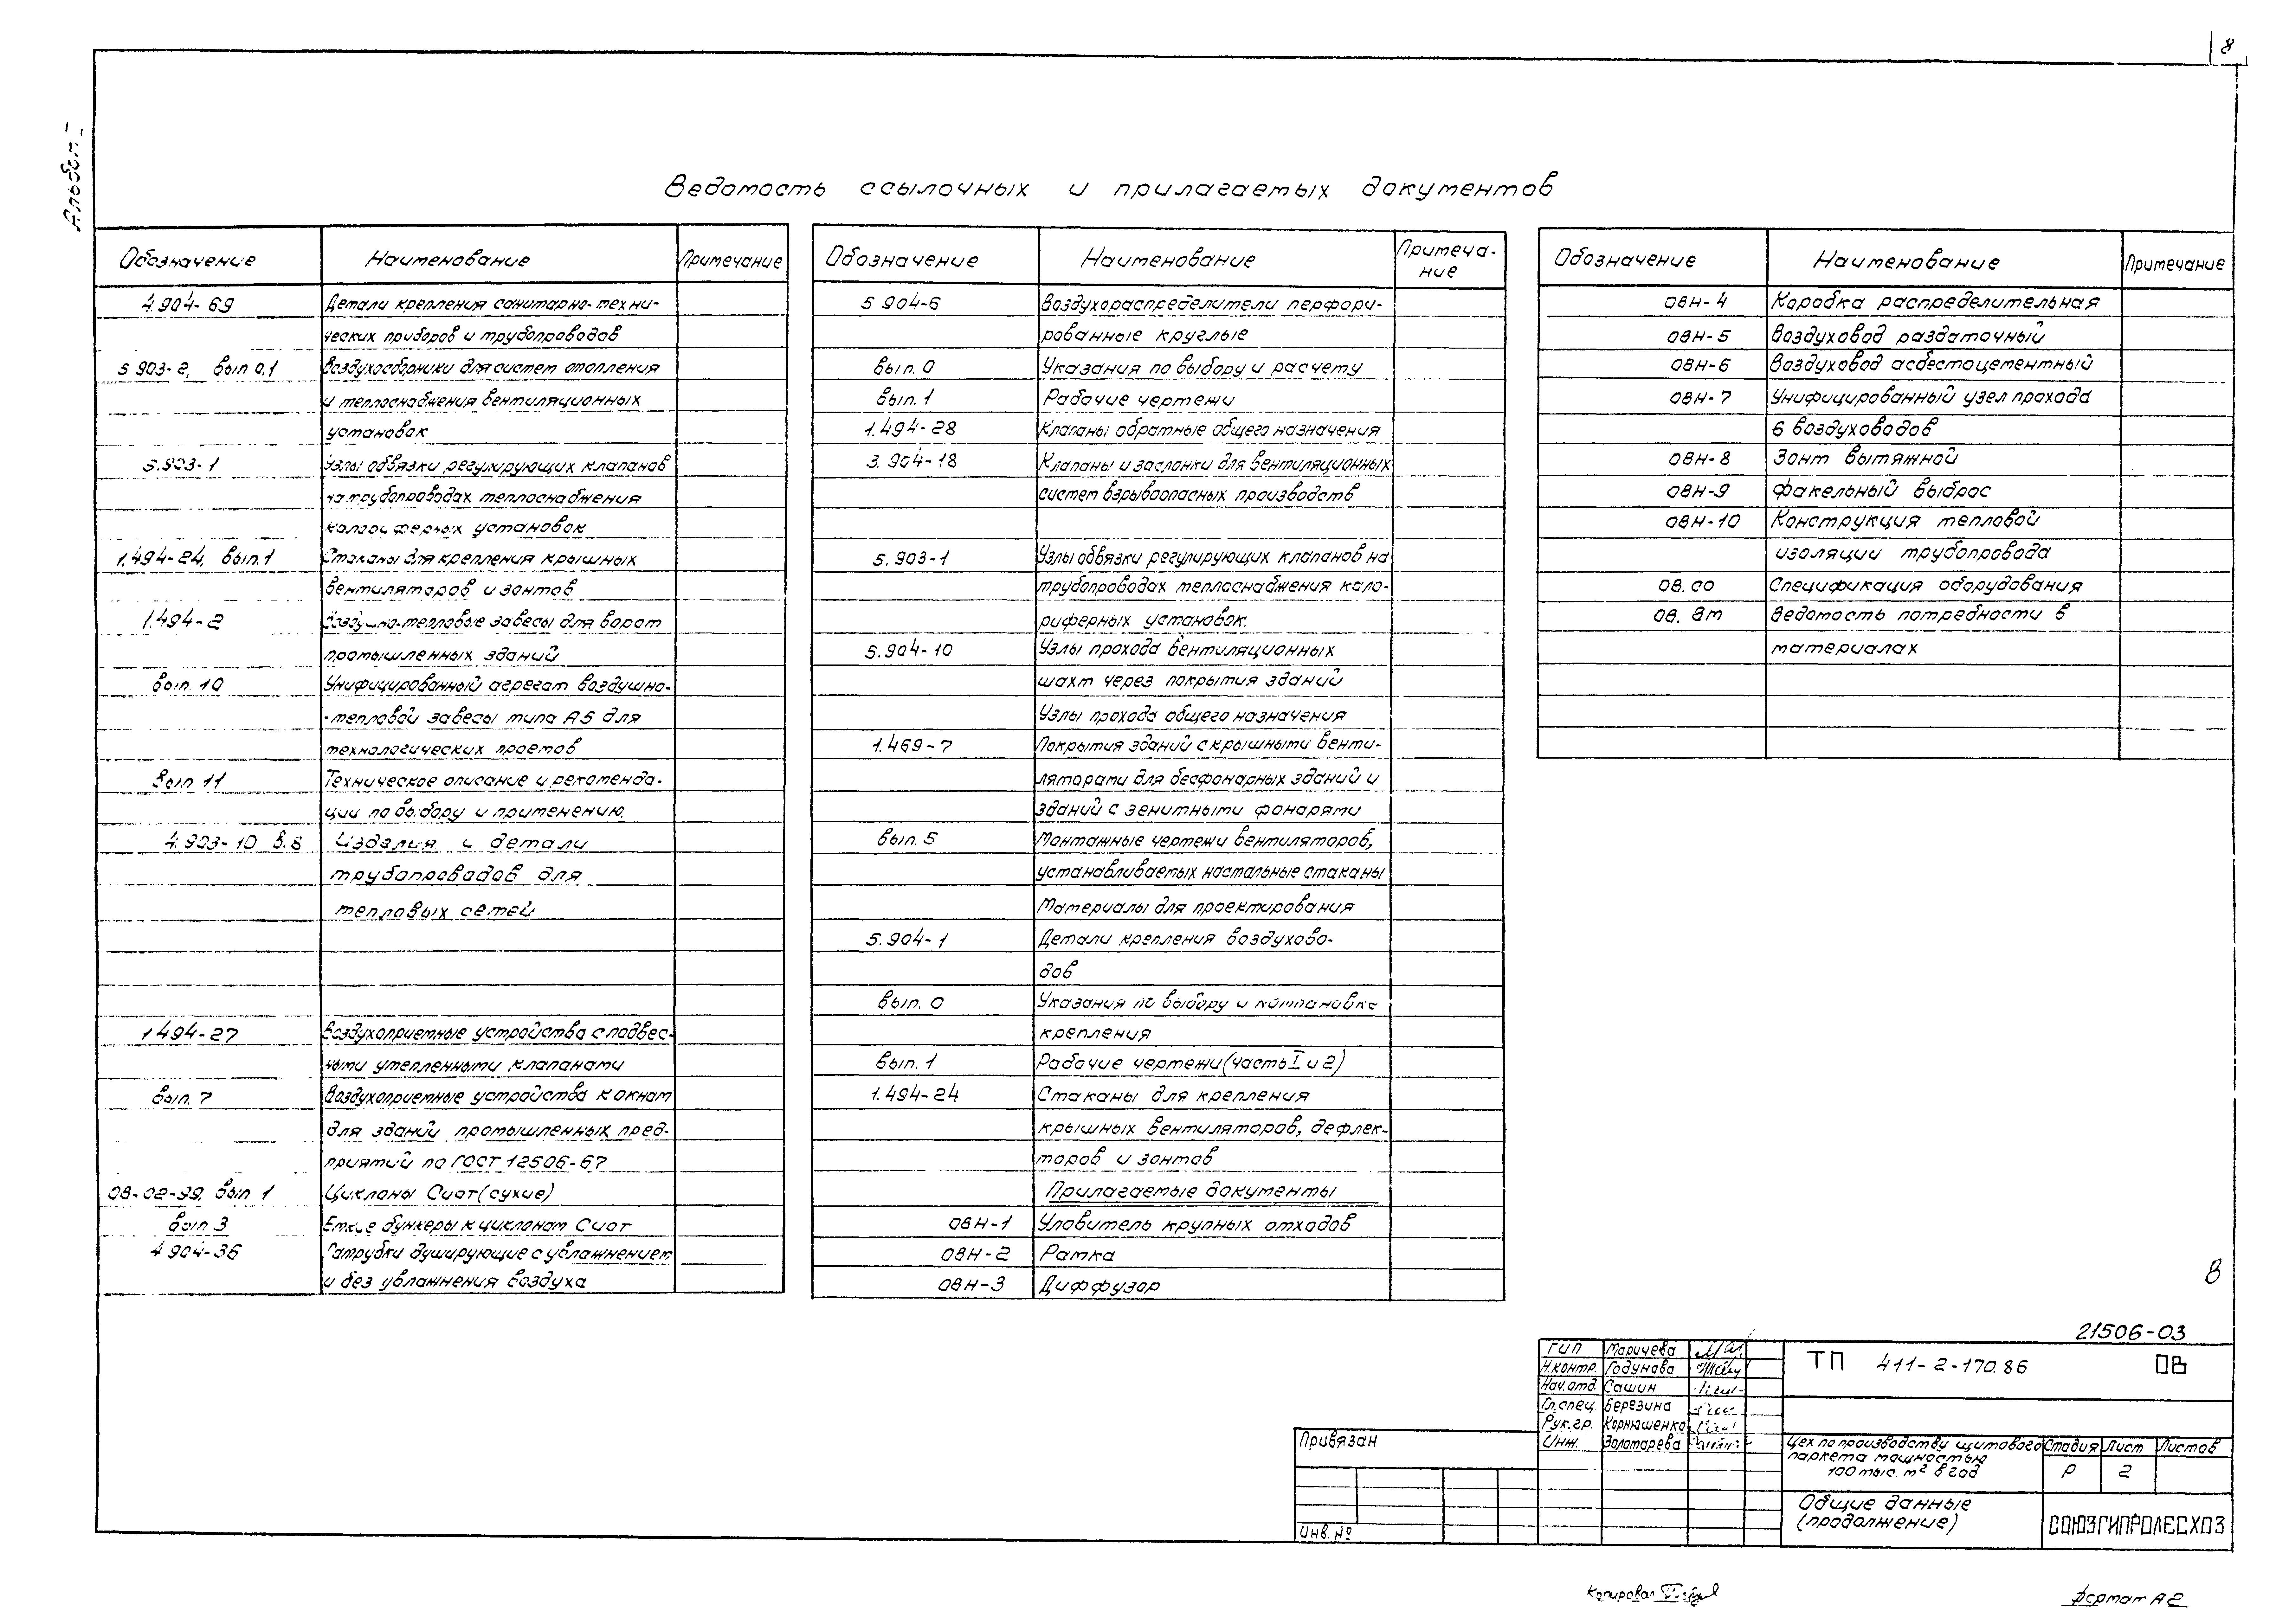 8
Альбом I
Ведомость ссылочных и прилагаемых документов
Обозначение Наименование Примечание
4.904-69 Детали крепления санитарно-техни-
ческих приборов и трубопроводов
5.903-2, вып 0,1 Воздухосборники для систем отопления
и теплоснабжения вентиляционных
установок
5.903-1 Узлы обвязки регулирующих клапанов
на трубопроводах теплоснабжения
калориферных установок
1.494-24, вып.1 Стаканы для крепления крышных
вентиляторов и зонтов
1.494-2 Воздушно-тепловые завесы для ворот
промышленных зданий
вып. 10 Унифицированный агрегат воздушно-
-тепловой завесы типа А5 для
технологических проемов
Вып 11 Техническое описание и рекоменда-
ции по выбору и применению.
4.903-10 в.8 Изделия и детали
трубопроводов для
тепловых сетей
1 494-27 Воздухоприемные устройства с подвес-
ными утепленными клапанами
вып. 7 Воздухоприемные устройства к окнам
для зданий промышленных пред-
приятий по ГОСТ 12506-67
08-02-99, вып 1 Циклоны Сиот (сухие)
вып 3 Емкие бункеры к циклонам Сиот
4 904-36 Патрубки душирующие с увлажнением
и без увлажнения воздуха
Обозначение Наименование Примеча-
ние
5 904-6 Воздухораспределители перфори-
рованные круглые
вып. 0 Указания по выбору и расчету
вып. 1 Рабочие чертежи
1.494-28 Клапаны обратные общего назначения
3. 904-18 Клапаны и заслонки для вентиляционных
систем взрывоопасных производств
5. 903-1 Узлы обвязки регулирующих клапанов на
трубопроводах теплоснабжения кало-
риферных установок.
5.904-10 Узлы прохода вентиляционных
шахт через покрытия зданий
Узлы прохода общего назначения
1.469-7 Покрытия зданий с крышными венти-
ляторами для бесфонарных зданий и
зданий с зенитными фонарями
вып. 5 Монтажные чертежи вентиляторов,
устанавливаемых на стальные стаканы
Материалы для проектирования
5.904-1 Детали крепления воздухово-
дов
вып. 0 Указания по выбору и компановке
крепления
вып. 1 Рабочие чертежи (часть I и 2)
1.494-24 Стаканы для крепления
крышных вентиляторов, дефлек-
торов и зонтов
Прилагаемые документы
ОВН-1 Уловитель крупных отходов
ОВН-2 Рамка
ОВН-3 Диффузор
Обозначение Наименование Примечание
ОВН-4 Коробка распределительная
ОВН-5 Воздуховод раздаточный
ОВН-6 Воздуховод асбестоцементный
ОВН-7 Унифицированный узел прохода
6 воздуховодов
ОВН-8 Зонт вытяжной
ОВН-9 Факельный выброс
ОВН-10 Конструкция тепловой
изоляции трубопровода
ОВ. СО Спецификация оборудования
ОВ. Вм Ведомость потребности в
материалах
8
21506-03
ГИП Маричева
Н.контр. Годунова
Нач.отд. Сашин
Гл.спец. Березина
Рук.гр. Корнюшенко
Инж. Золотарева
ТП 411-2-170.86 ОВ
Привязан
Инв. №
Цех по производству щитового
паркета мощностью
100 тыс. м² в год
Стадия Лист Листов
Р 2
Общие данные
(продолжение)
СОЮЗГИПРОЛЕСХОЗ
Копировал
Формат А2